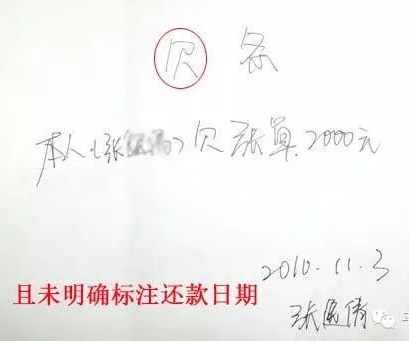 欠条
本人(张)欠张单2000元
2010.11.3
且未明确标注还款日期
张倩